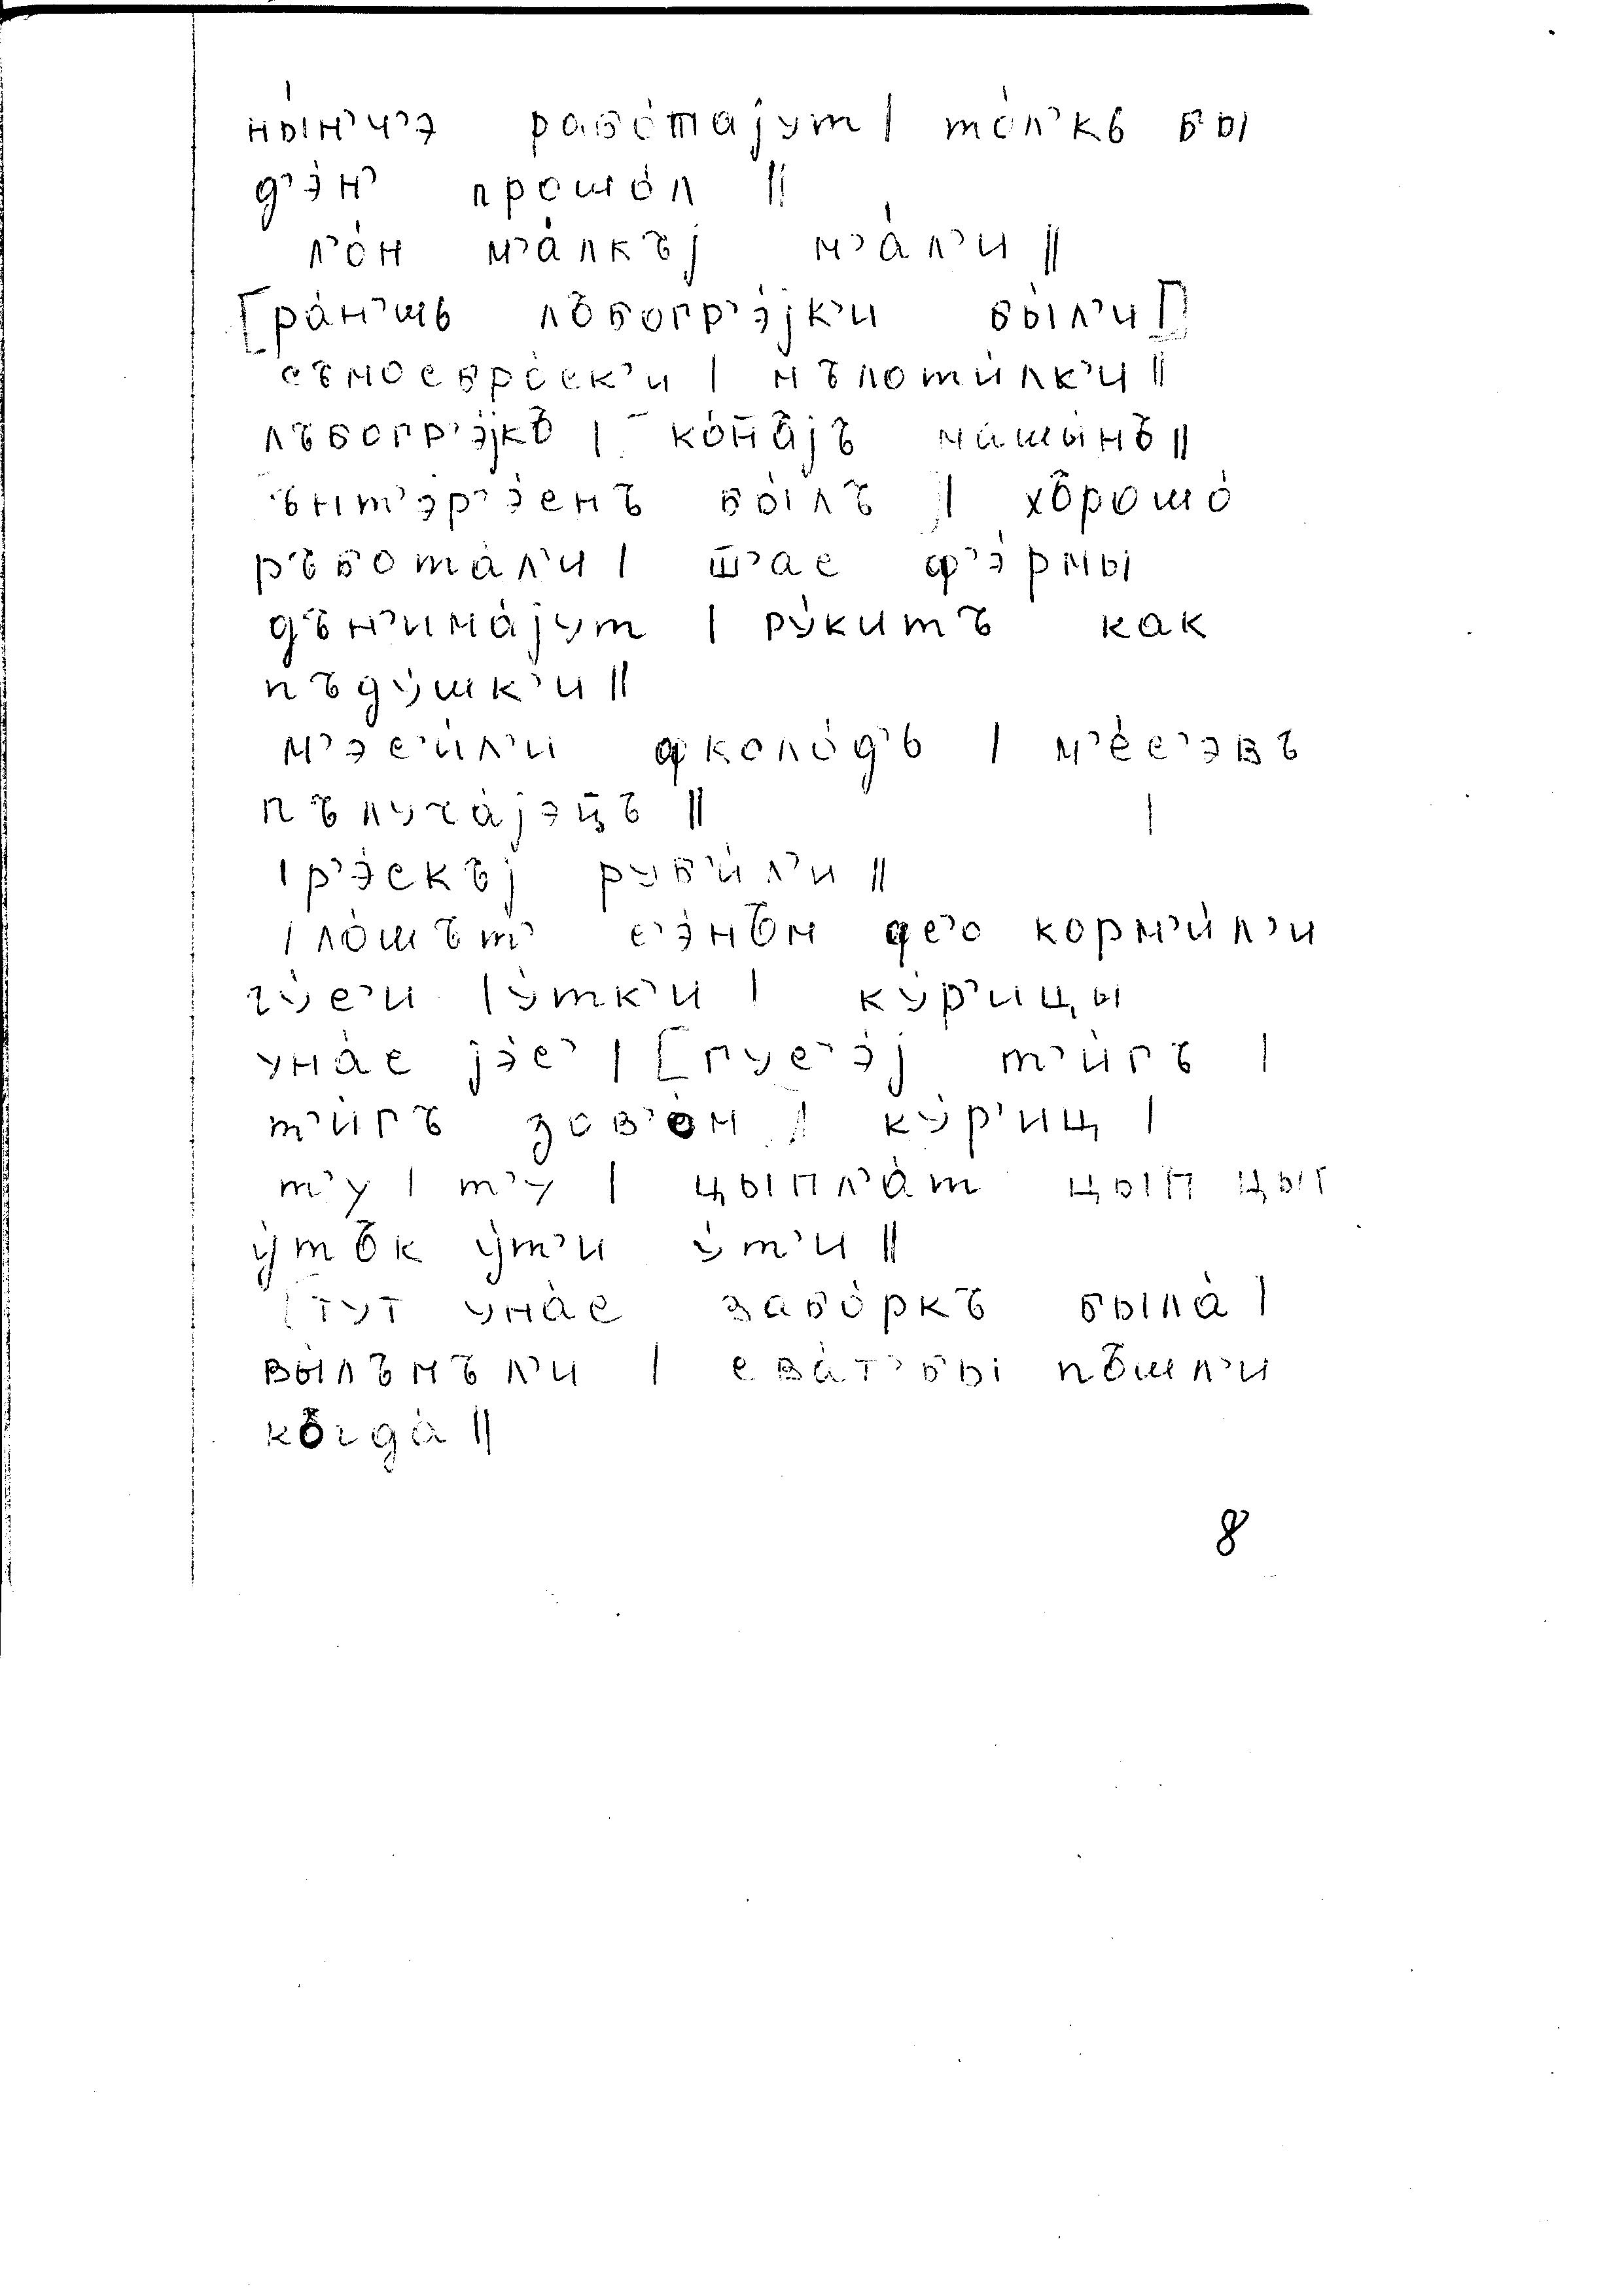 ны́н’ч’э рабо́тајут | то́л’кь бы
д’э́н’ прошо́л ||
л’о́н м’а́лкъј м’а́л’и ||
[ра́н’шь лъбогр’э́јк’и бы́л’и]
съмосбро́ск’и | мълоти́лк’и ||
лъбогр’э́јкъ | ко́н̄ајъ машы́нъ ||
ънт’эр’э́снъ бы́лъ | хъ̂рошо́
ръбота́л’и | ш̄’ас ф’э́рмы
дън’има́јут | ру́китъ как
пъду́шк’и ||
м’эс’и́л’и фколо́д’ь | м’е́с’эвъ
пълуча́јэц̄ъ ||
| р’э́скъј руб’и́л’и ||
| ло́шът’ с’э́нъм фс’о корм’и́л’и
гу́с’и | у́тк’и | ку́р’ицы
уна́с јэ́с’ | [гус’э́ј т’и́гъ |
т’и́гъ зов’о́м | ку́р’иц |
т’у | т’у | цыпл’а́т цып цып
у́тък у́т’и у́т’и ||
[тут уна́с забо́ркъ была́ |
вы́лъмъл’и | сва́т’бы пъшл’и
къгда́ ||
8